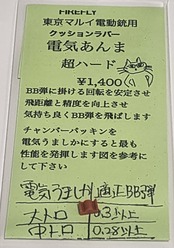 FIREFLY
東京マルイ電動銃用
クッションラバー
電気あんま
超ハード
¥1,400
BB弾に掛ける回転を安定させ
飛距離と精度を向上させ
気持ち良くBB弾を飛ばします
チャンバーパッキンを
電気うましかにすると最も
性能を発揮します図を参考に
して下さい
電気うましか適正BB弾
大トロ 0.3以上
中トロ 0.28以上